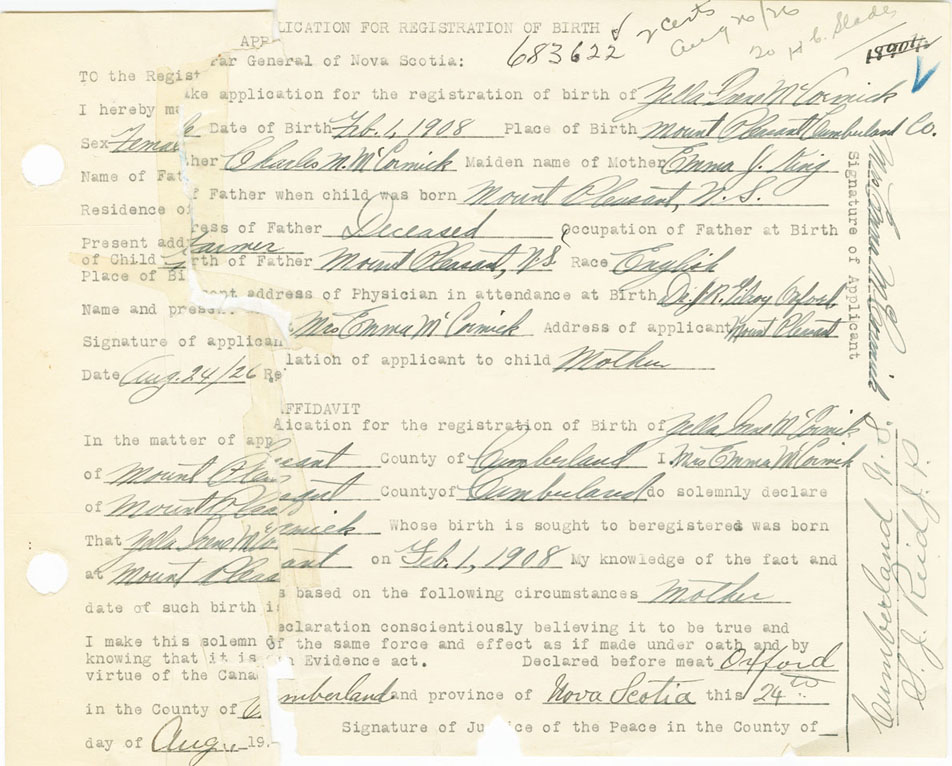 APPLICATION FOR REGISTRATION OF BIRTH
683622 2 certs
Aug 26/26
To H. C. Slade
TO the Registrar General of Nova Scotia:
I hereby make application for the registration of birth of Zella Irene McCormick
Sex Female Date of Birth Feb. 1, 1908 Place of Birth Mount Pleasant, Cumberland Co.
Name of Father Charles M. McCormick Maiden name of Mother Emma J. King
Residence of Father when child was born Mount Pleasant, N.S.
Present address of Father Deceased Occupation of Father at Birth
of Child Farmer
Place of Birth of Father Mount Pleasant, N.S. Race English
Name and present address of Physician in attendance at Birth Dr. J. R. Gilroy Oxford
Signature of applicant Mrs Emma McCormick Address of applicant Mount Pleasant
Date Aug. 24/26 Relation of applicant to child Mother
AFFIDAVIT
In the matter of application for the registration of Birth of Zella Irene McCormick
of Mount Pleasant County of Cumberland I, Mrs Emma McCormick
of Mount Pleasant County of Cumberland do solemnly declare
That Zella Irene McCormick Whose birth is sought to beregistered was born
at Mount Pleasant on Feb. 1, 1908 My knowledge of the fact and
date of such birth is based on the following circumstances Mother
I make this solemn declaration conscientiously believing it to be true and
knowing that it is of the same force and effect as if made under oath and by
virtue of the Canada Evidence act. Declared before meat Oxford
in the County of Cumberland and province of Nova Scotia this 24th
day of Aug., 19. Signature of Justice of the Peace in the County of
Signature of Applicant
Mrs Emma McCormick
Cumberland N.S.
S. J. Reid J. P.